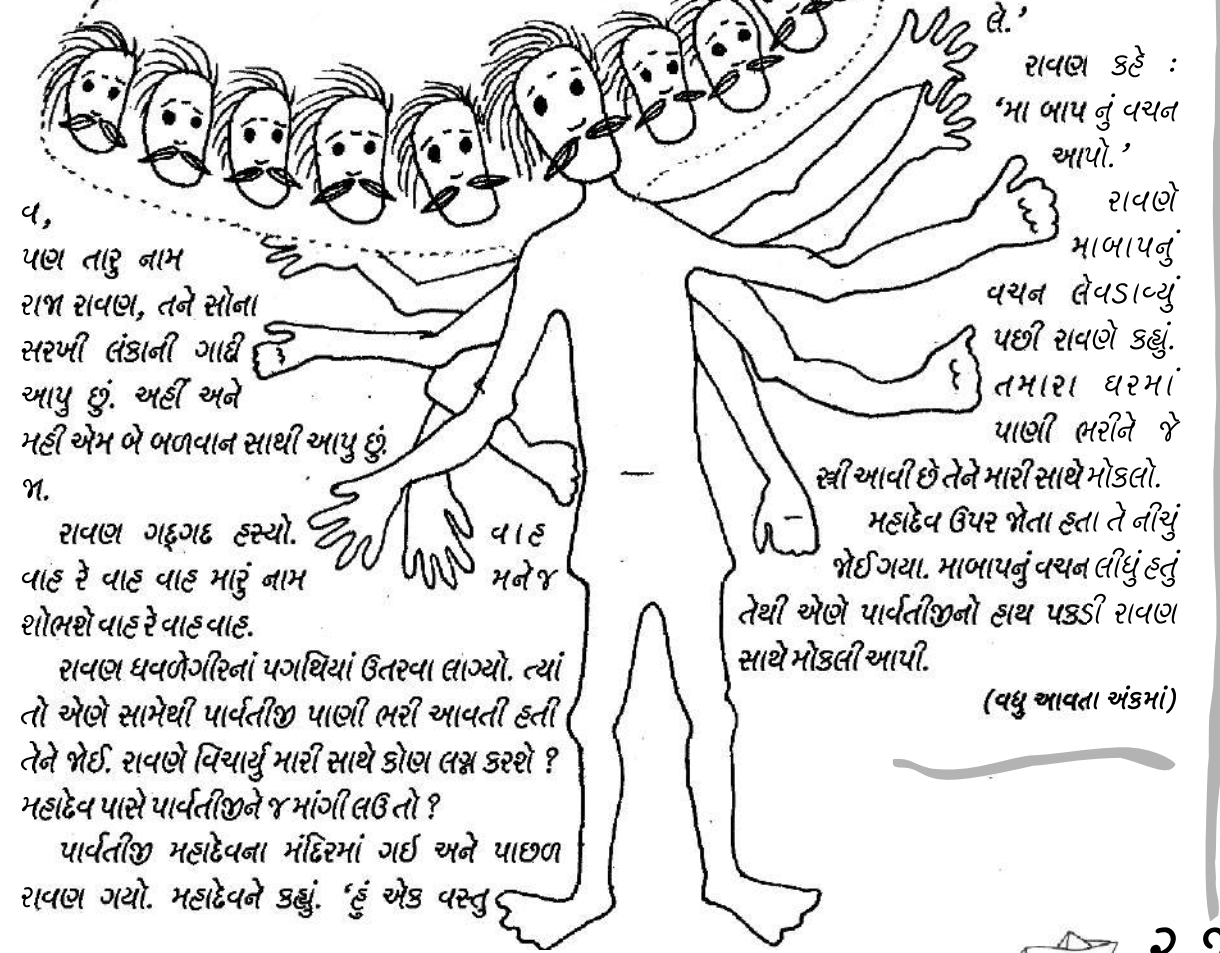 વ,
પણ તારુ નામ
રાજા રાવણ, તને સોના
સરખી લંકાની ગાદી
આપુ છું. અહીં અને
મહી એમ બે બળવાન સાથી આપુ છું.
જા.
રાવણ ગદ્ગદ હસ્યો. વાહ
વાહ રે વાહ વાહ મારું નામ મનેજ
શોભશે વાહ રે વાહ વાહ.
રાવણ ધવળેગીરનાં પગથિયાં ઉતરવા લાગ્યો. ત્યાં
તો એણે સામેથી પાર્વતીજી પાણી ભરી આવતી હતી
તેને જોઈ. રાવણે વિચાર્યુ મારી સાથે કોણ લગ્ન કરશે ?
મહાદેવ પાસે પાર્વતીજીને જ માંગી લઉ તો ?
પાર્વતીજી મહાદેવના મંદિરમાં ગઈ અને પાછળ
રાવણ ગયો. મહાદેવને કહ્યું. ‘હું એક વસ્તુ
લે.’
રાવણ કહે :
‘મા બાપ નું વચન
આપો.’
રાવણે
માબાપનું
વચન લેવડાવ્યું
પછી રાવણે કહ્યું.
તમારા ઘરમાં
પાણી ભરીને જે
સ્ત્રી આવી છે તેને મારી સાથે મોકલો.
મહાદેવ ઉપર જોતા હતા તે નીચું
જોઈ ગયા. માબાપનું વચન લીધું હતું
તેથી એણે પાર્વતીજીનો હાથ પકડી રાવણ
સાથે મોકલી આપી.
(વધુ આવતા અંકમાં)